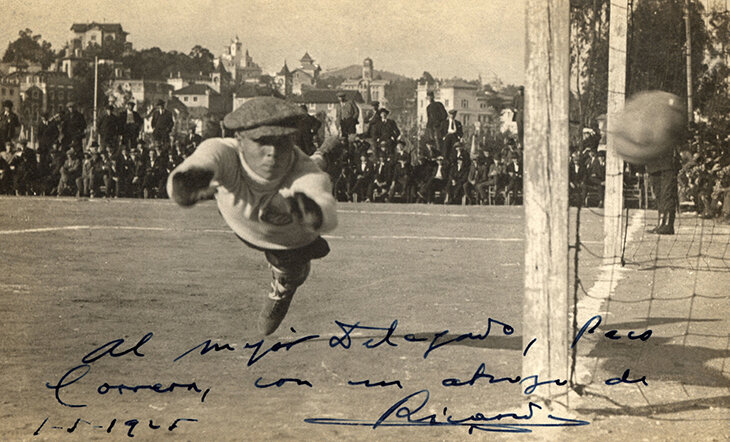 Al mejor Delegado, Paco
con un abrazo de
1-5-1925 Ricardo